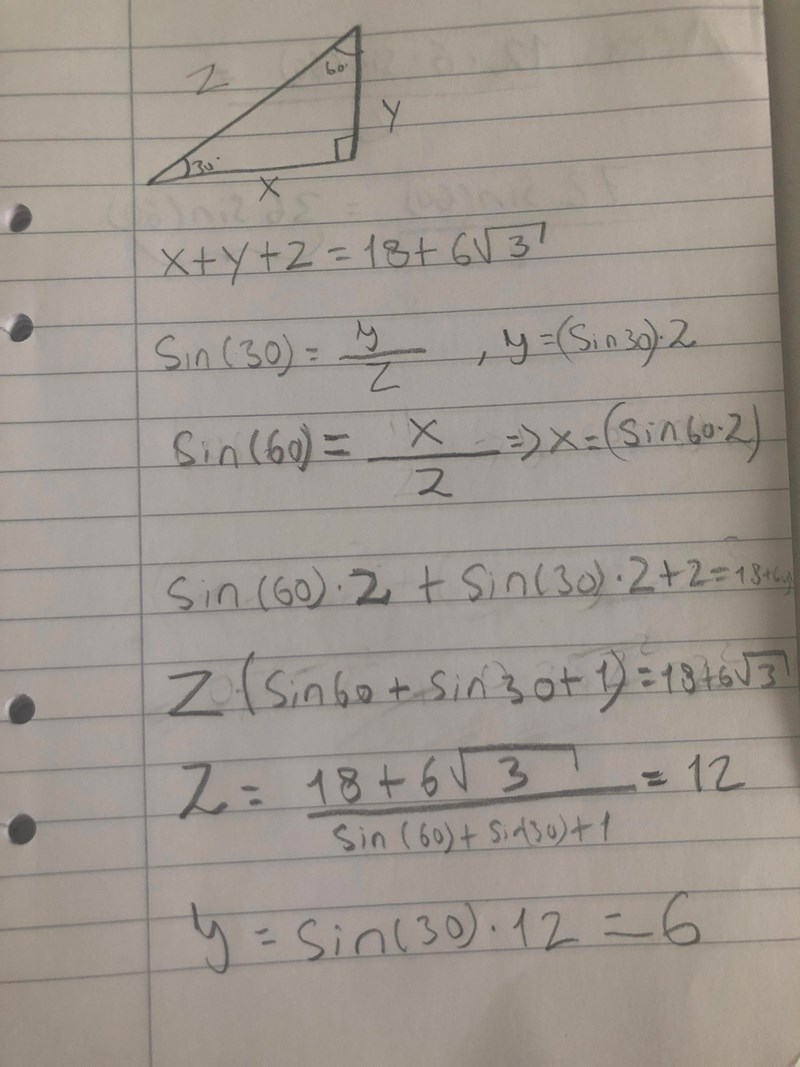 Z
60°
Y
30°
X
X+Y+Z=18+6√3
Sin(30)= y/Z , y=(Sin30)·Z
Sin(60)= X/Z => X=(Sin60·Z)
Sin(60)·Z + Sin(30)·Z+Z=18+6√
Z(Sin60+Sin30+1)=18+6√3
Z= 18+6√3 / Sin(60)+Sin(30)+1 =12
y=Sin(30)·12=6